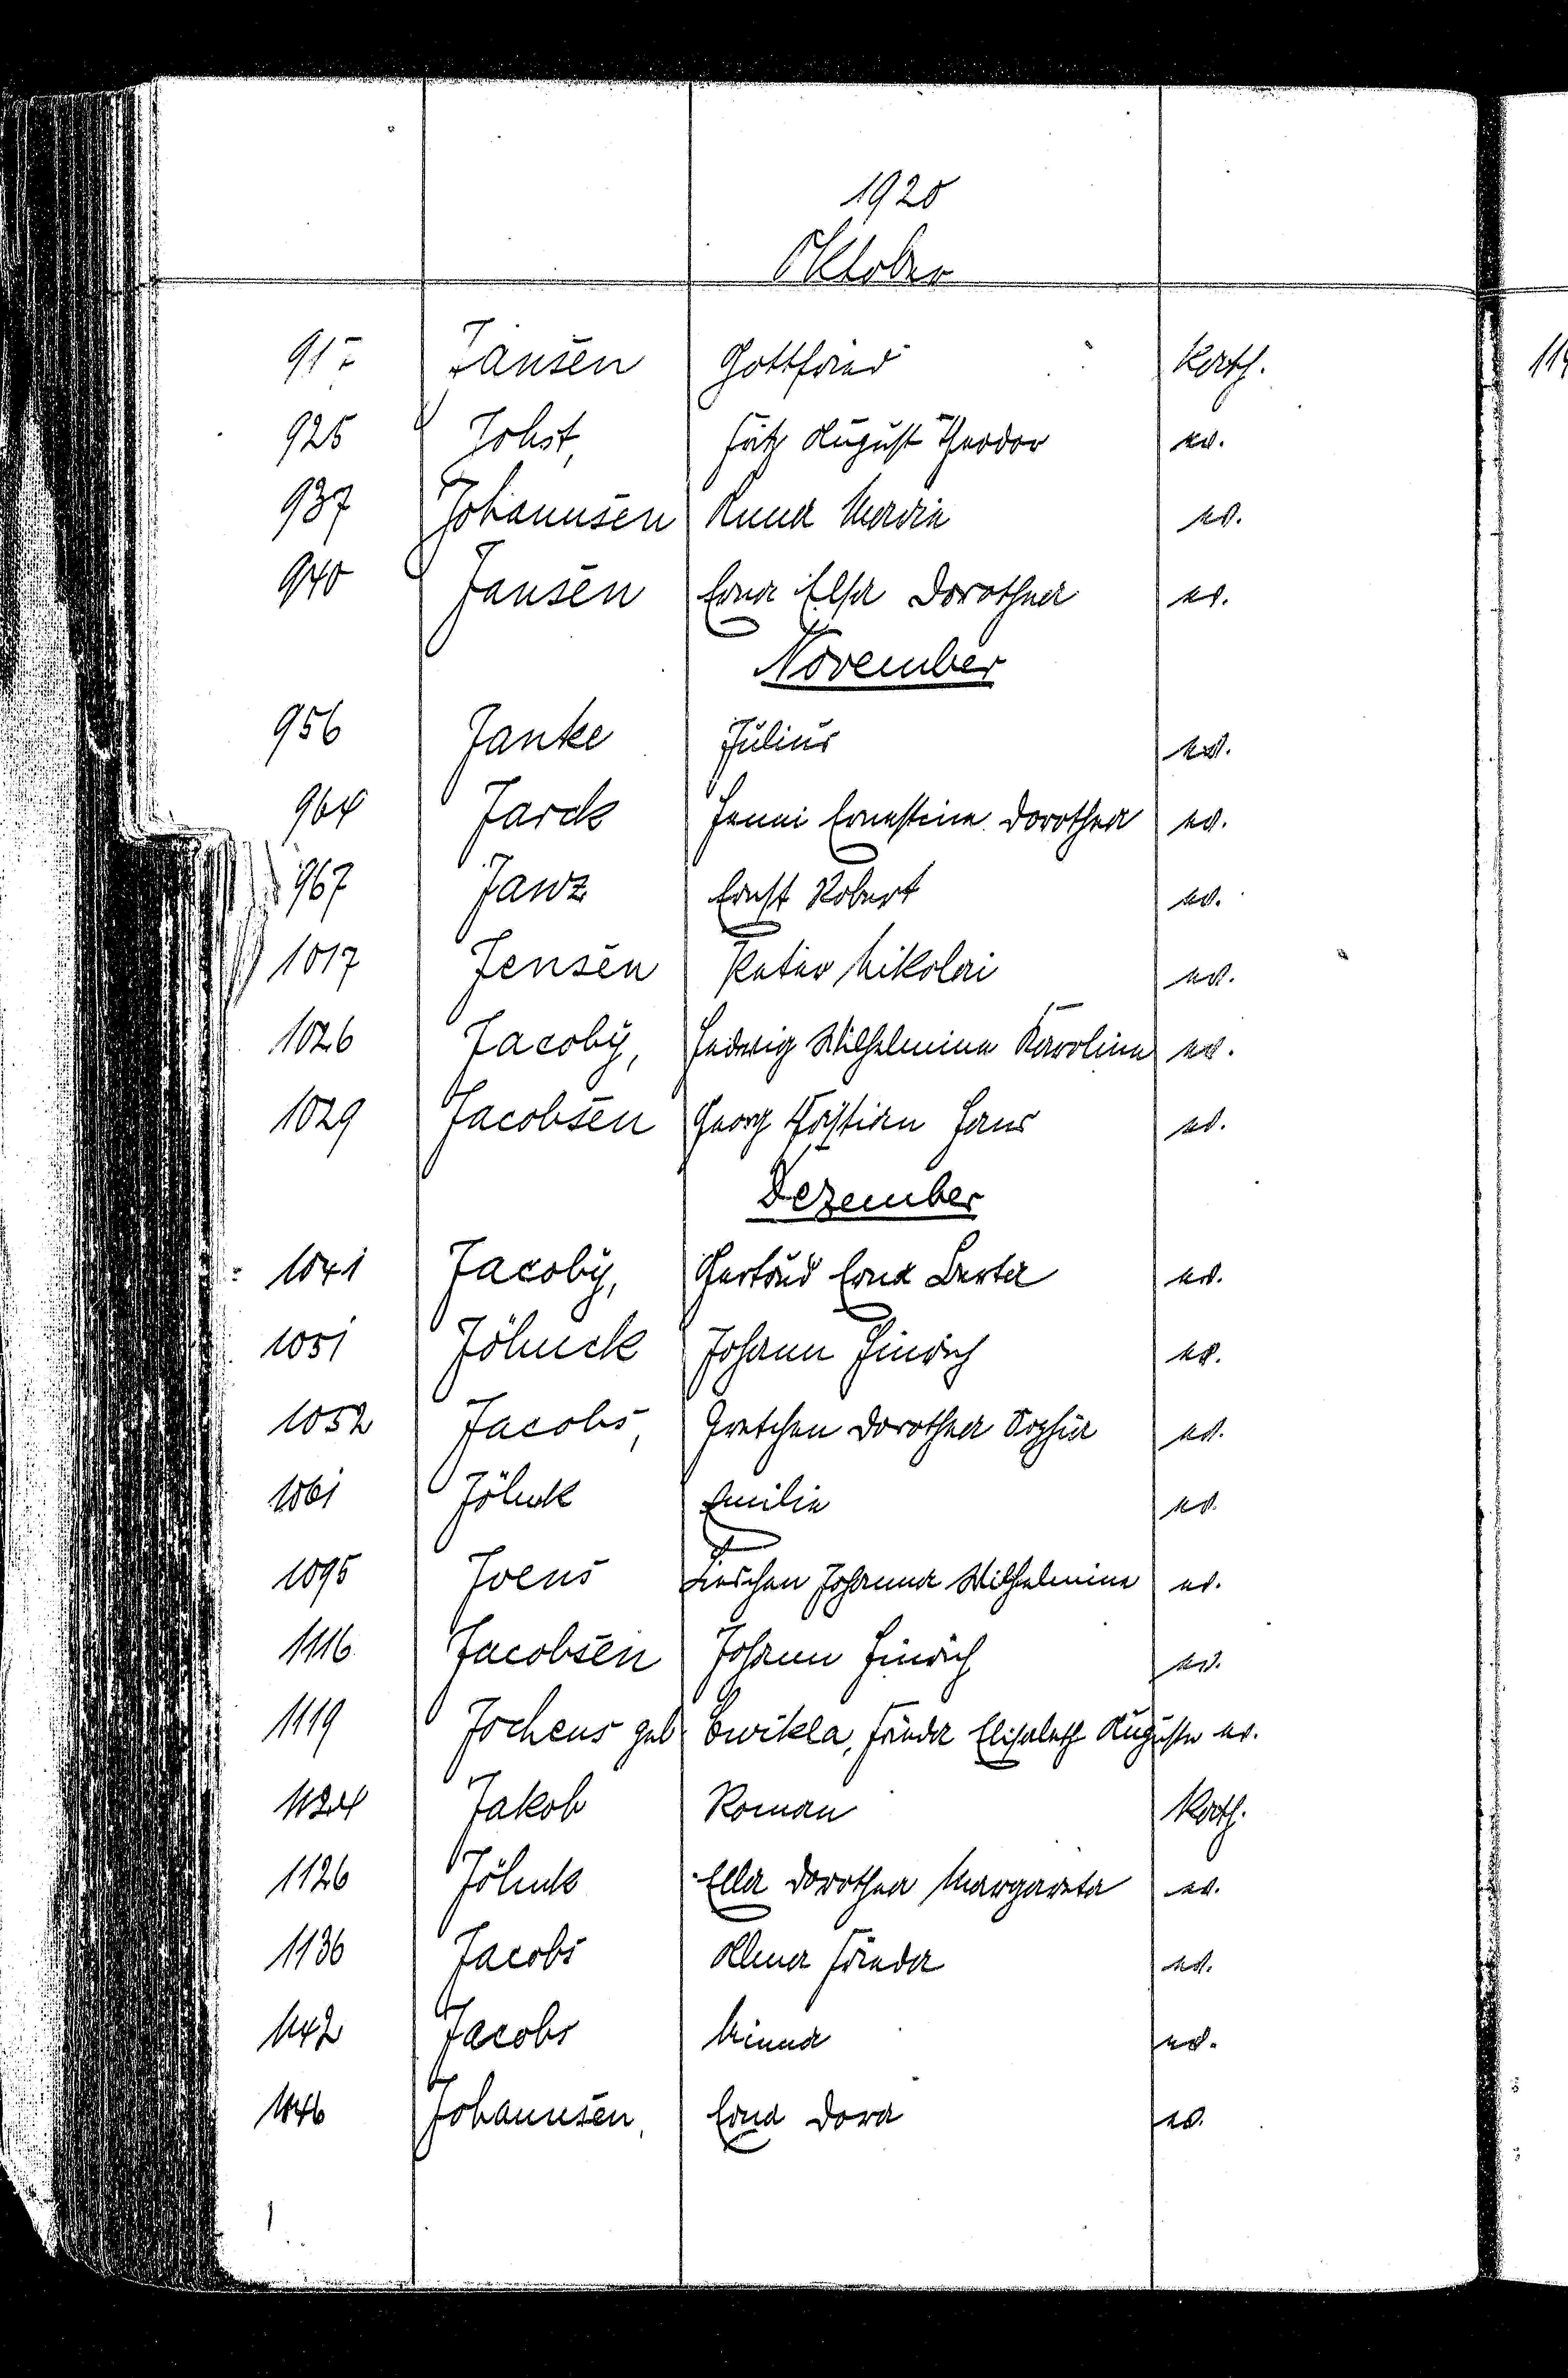 1920
Oktober
917 Jansen Gottfried kath.
925 Jobst, Fritz August Theodor ev.
937 Johannsen Anna Marie ev.
940 Jansen Erna Elsa Dorothea ev.
November
956 Janke Julius ev.
964 Jarck Henni Ernestine Dorothea ev.
967 Janz Ernst Robert ev.
1017 Jensen Peter Nikolai ev.
1026 Jacoby, Hedwig Wilhelmine Karoline ev.
1029 Jacobsen Georg Kristian Hans ev.
Dezember
1041 Jacoby, Gertrud Erna Berta ev.
1051 Jöhnck Johann Hinrich ev.
1052 Jacobs, Gretchen Dorothea Sophia ev.
1061 Jöhnk Emilie ev.
1095 Joens Lieschen Johanna Wilhelmine ev.
1116 Jacobsen Johann Hinrich ev.
1119 Jochens geb. Cwikla, Frieda Elisabeth Auguste ev.
1124 Jakob Roman kath.
1126 Jöhnk Ella Dorothea Margareta ev.
1136 Jacobs Alma Frieda ev.
1142 Jacobs Minna ev.
1146 Johannsen, Erna Dora ev.